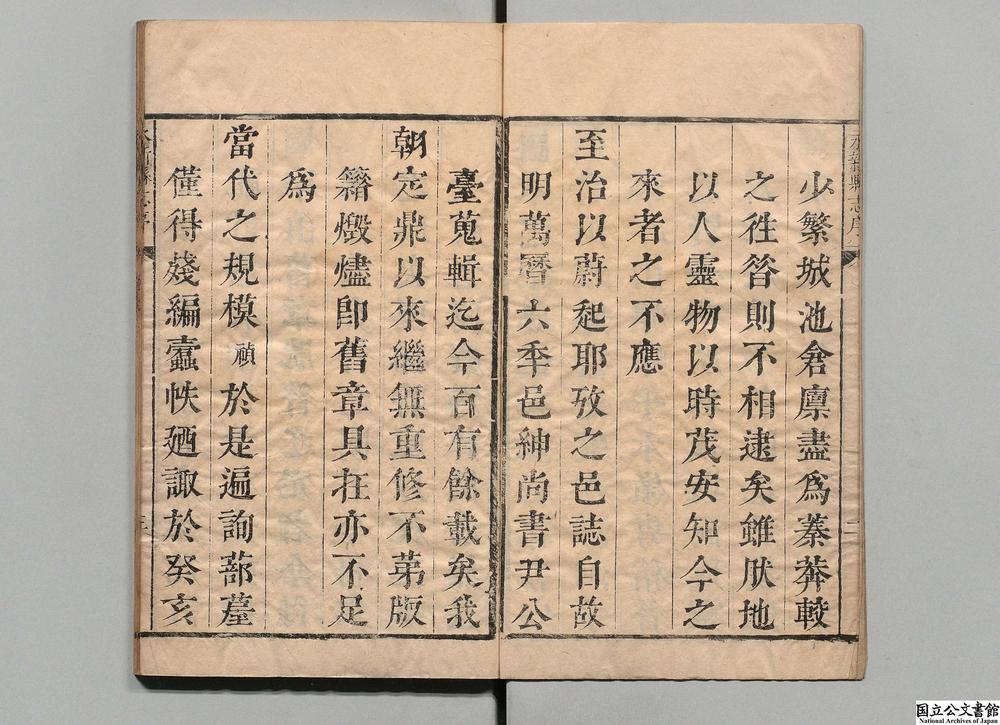 少繁城池倉廪盡爲蓁莽較
之徃昝則不相逮矣雖肰地
以人靈物以時茂安知今之
來者之不應
至治以蔚起耶攷之邑誌自故
明萬曆六秊邑紳尚書尹公
臺蒐輯迄今百有餘載矣我
朝定鼎以來繼無重修不苐版
籍燬燼卽舊章具在亦不足
爲
當代之規模禎於是遍詢蔀蓬
僅得殘編蠹帙廼諏於癸亥
国立公文書館
National Archives of Japan